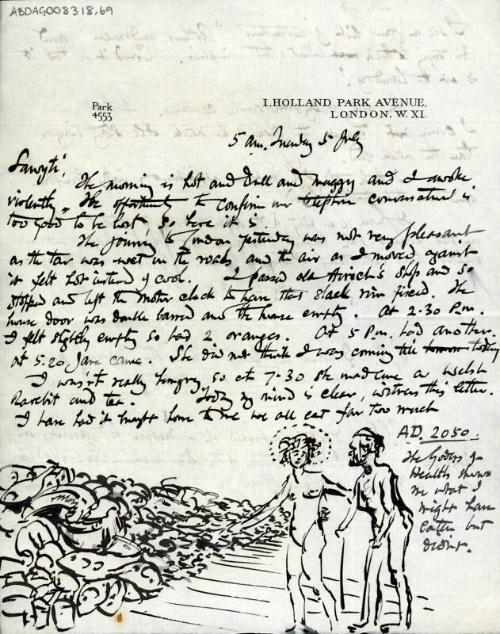 ABDAG008318.69
Park
4553
1. HOLLAND PARK AVENUE.
LONDON. W. XI.
5 am. Tuesday 5 July
The morning is hot and dull and muggy and I awoke
violently. The opportunity to confirm our telephone conversation is
too good to be lost, so here it is
The journey to London yesterday was not very pleasant
as the tar was wet in the roads and the air as I moved against
it felt hot instead of cool. I passed old Hirsch's shop and so
stopped and left the motor clock to have that slack rim fixed. The
house door was double barred and the house empty. At 2-30 P.m.
I felt slightly empty so had 2 oranges. At 5 P.m. had another.
at 5.20 Jane came. She did not think I was coming till today
I wasn't really hungry, so at 7.30 she made me a Welsh
Rarebit and tea. Today my mind is clear, witness this letter.
I have had it brought home to me we all eat far too much
A.D. 2050.
The Godess of
Health shows
me what I
might have
Eaten but
didint.